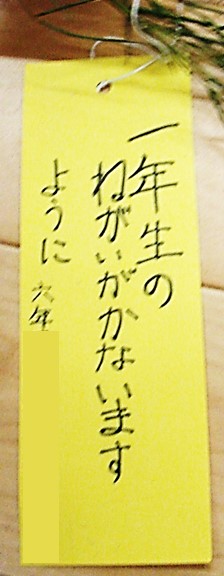 一年生の
ねがいがかないます
ように 六年